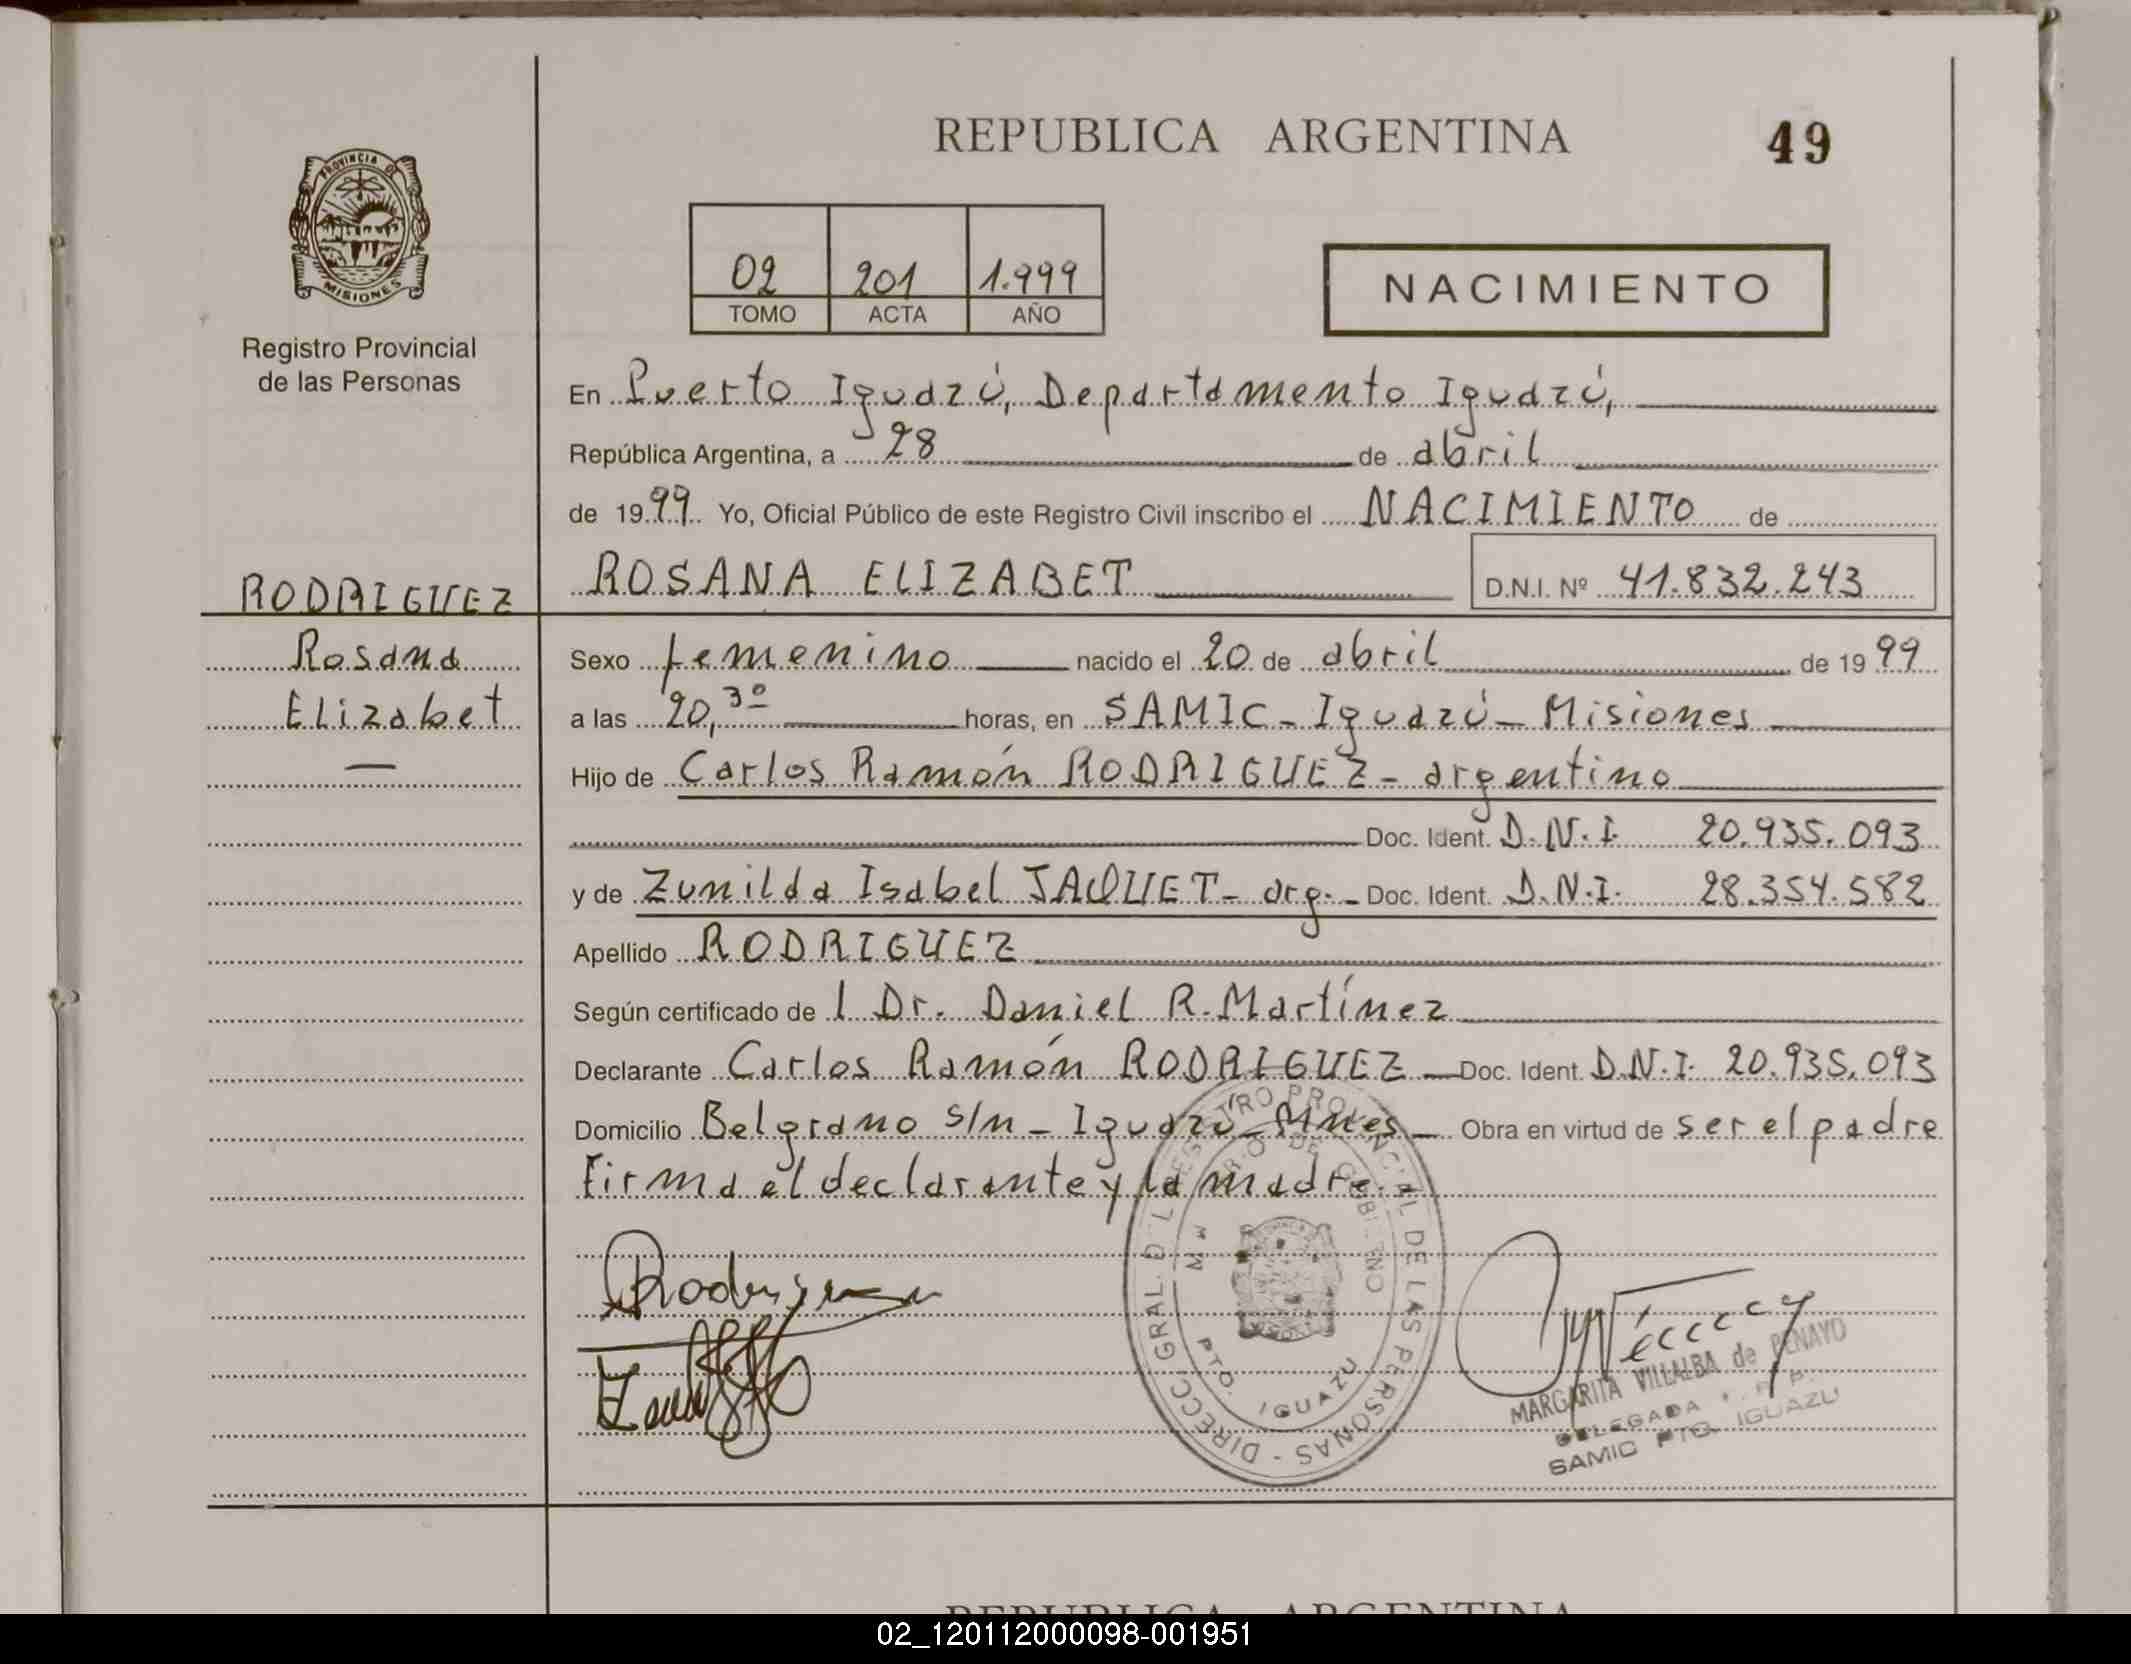 REPUBLICA ARGENTINA
49
PROVINCIA DE
MISIONES
Registro Provincial
de las Personas
02 201 1.999
TOMO ACTA AÑO
NACIMIENTO
En Puerto Iguazú, Departamento Iguazú,
República Argentina, a 28 de abril
de 1999 Yo, Oficial Público de este Registro Civil inscribo el NACIMIENTO de
RODRIGUEZ
Rosana
Elizabet
ROSANA ELIZABET D.N.I. Nº 41.832.243
Sexo femenino nacido el 20 de abril de 1999
a las 20,30 horas, en SAMIC - Iguazú - Misiones
Hijo de Carlos Ramón RODRIGUEZ - argentino
Doc. Ident. D.N.I. 20.935.093
y de Zunilda Isabel JAQUET - arg. - Doc. Ident. D.N.I. 28.354.582
Apellido RODRIGUEZ
Según certificado de l Dr. Daniel R. Martínez
Declarante Carlos Ramón RODRIGUEZ - Doc. Ident. D.N.I. 20.935.093
Domicilio Belgrano s/n - Iguazú - Mnes - Obra en virtud de ser el padre
Firma el declarante y la madre.
DIRECC. GRAL. DEL REGISTRO PROVINCIAL DE LAS PERSONAS -
DE GOBIERNO
PTO. IGUAZU
MARGARITA VILLALBA de PENAYO
DELEGADA
SAMIC PTO. IGUAZU
REPUBLICA ARGENTINA
02_120112000098-001951